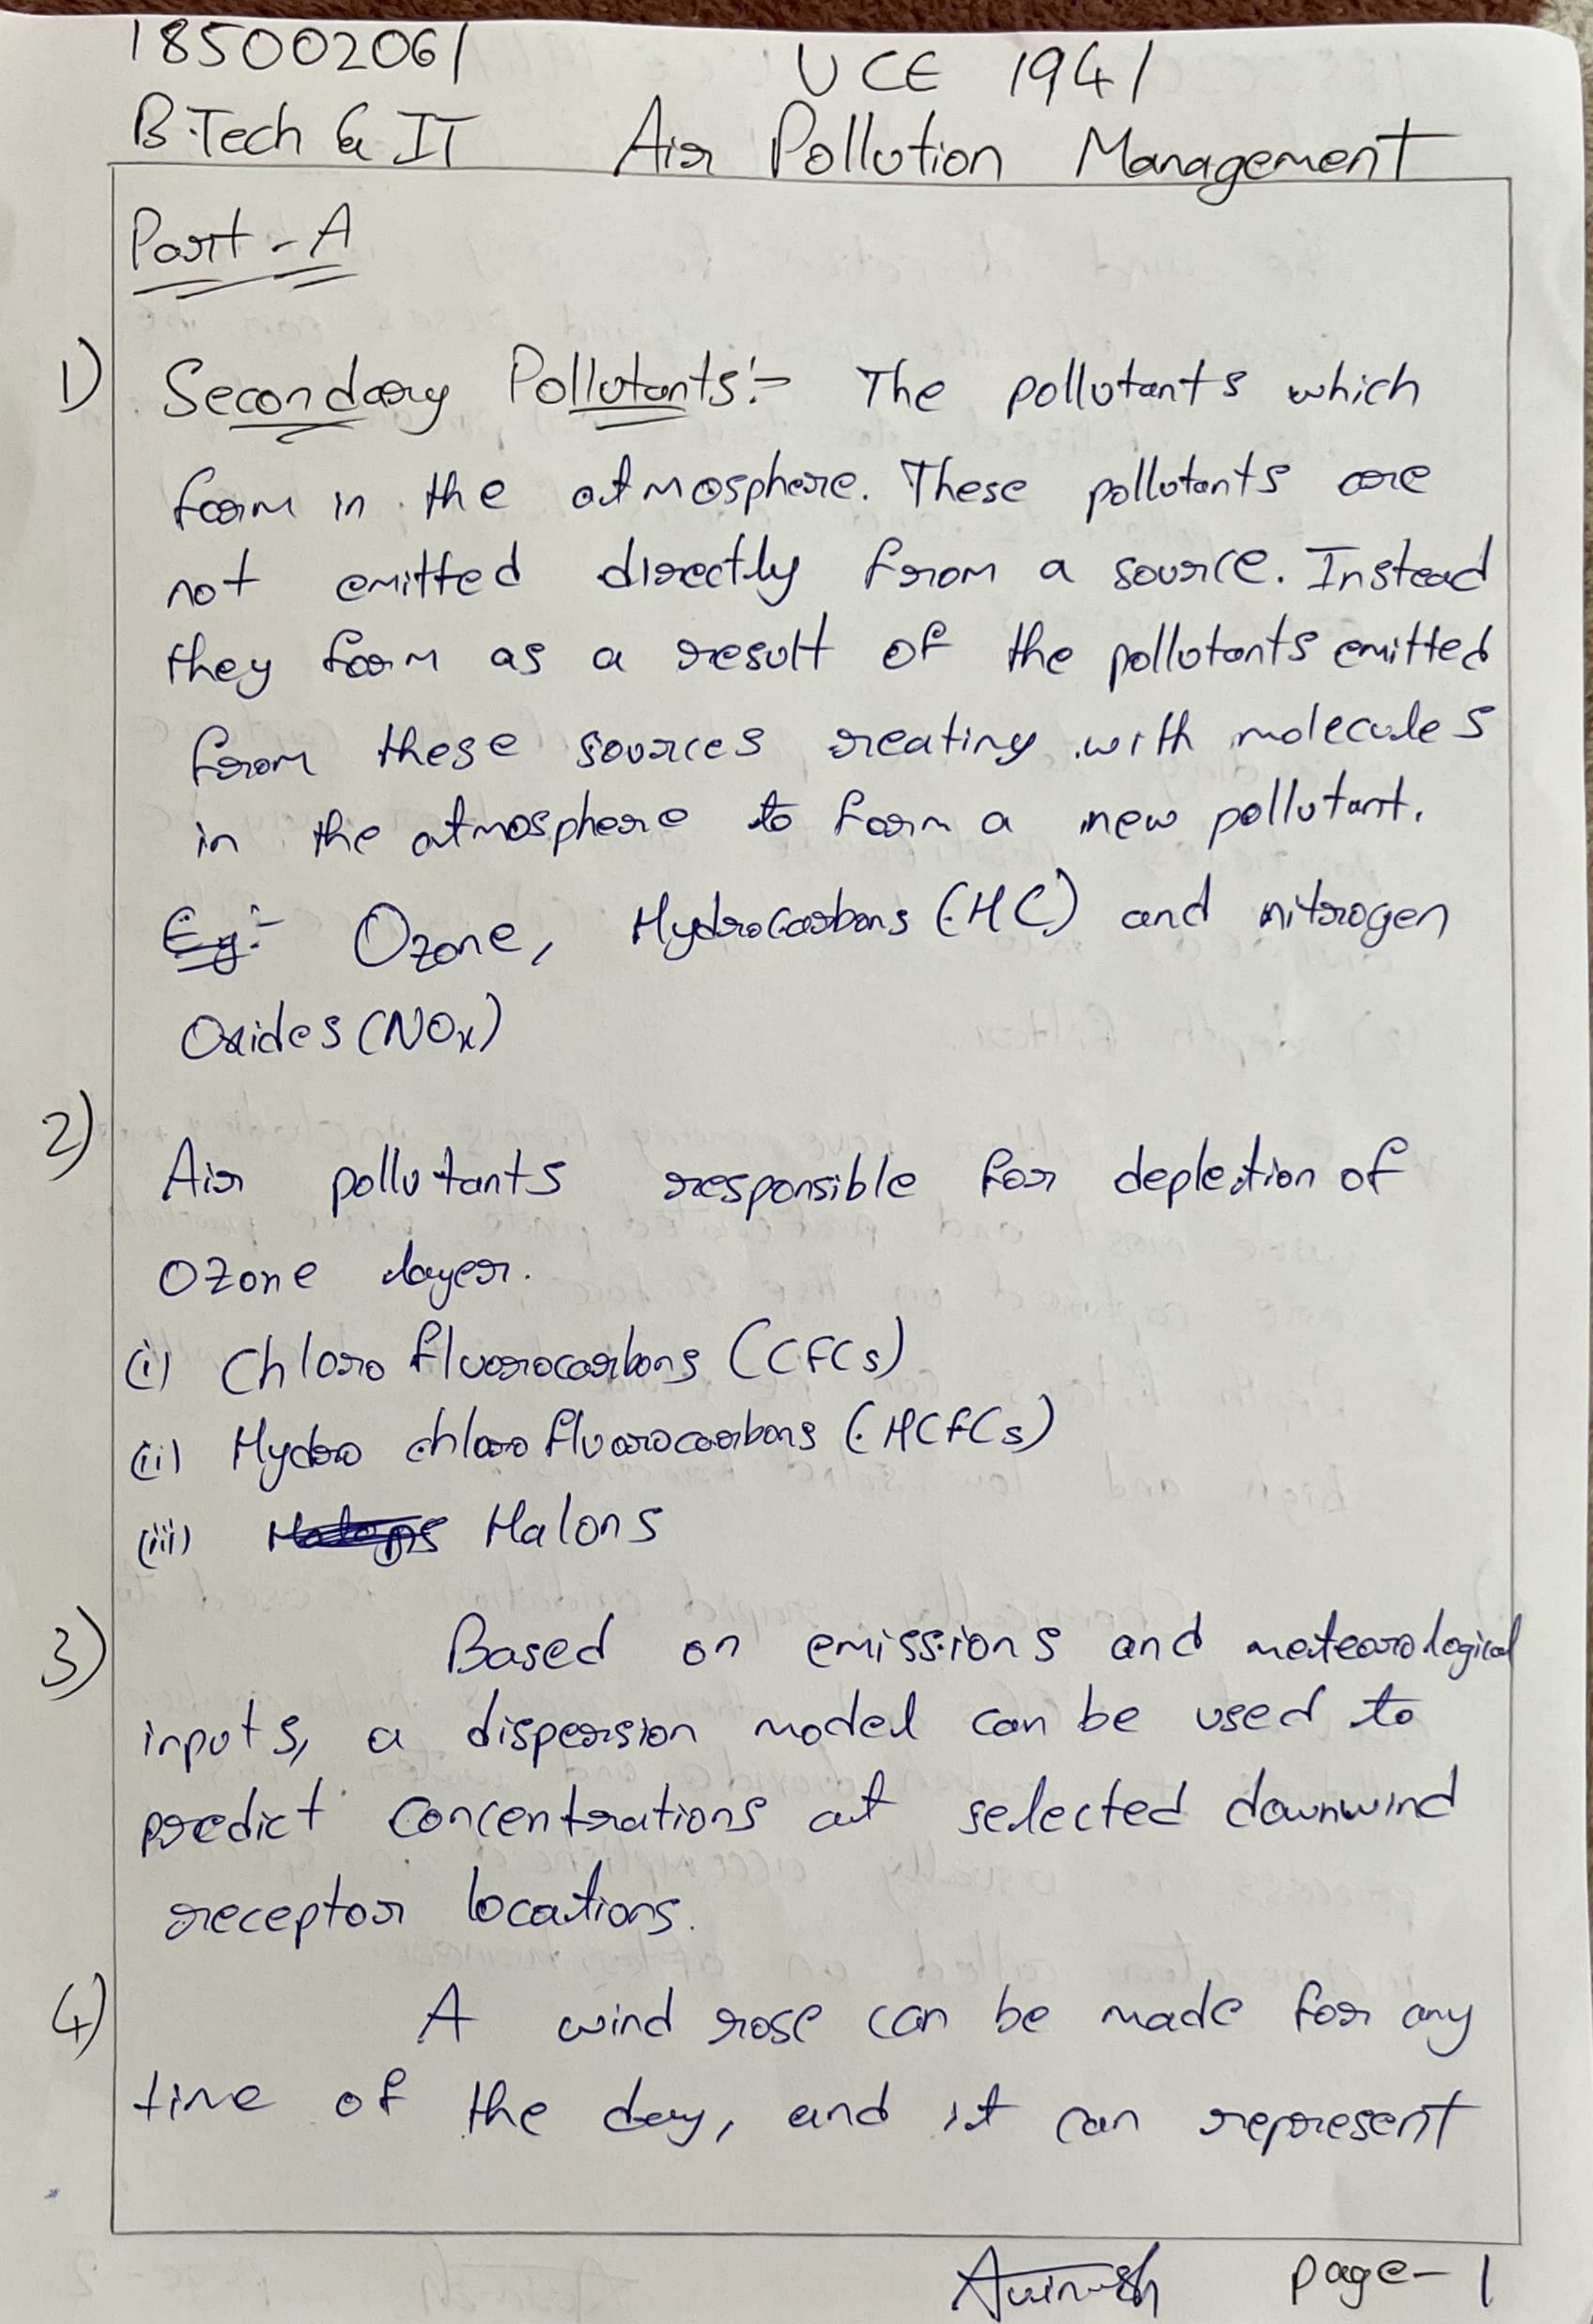 185002061
UCE 1941
B.Tech & IT Air Pollution Management
Part - A
1) Secondary Pollutants:- The pollutants which
form in the atmosphere. These pollutants are
not emitted directly from a source. Instead
they form as a result of the pollutants emitted
from these sources reating with molecules
in the atmosphere to form a new pollutant.
Eg:- Ozone, Hydrocarbons (HC) and nitrogen
Oxides (NOx)
2)
Air pollutants responsible for depletion of
Ozone layer.
(i) Chloro fluorocarbons (CFCs)
(ii) Hydro chloro fluorocarbons (HCFCs)
(iii) Halons
3) Based on emissions and meteorological
inputs, a dispersion model can be used to
predict concentrations at selected downwind
receptor locations.
4) A wind rose can be made for any
time of the day, and it can represent
Avinash page- 1